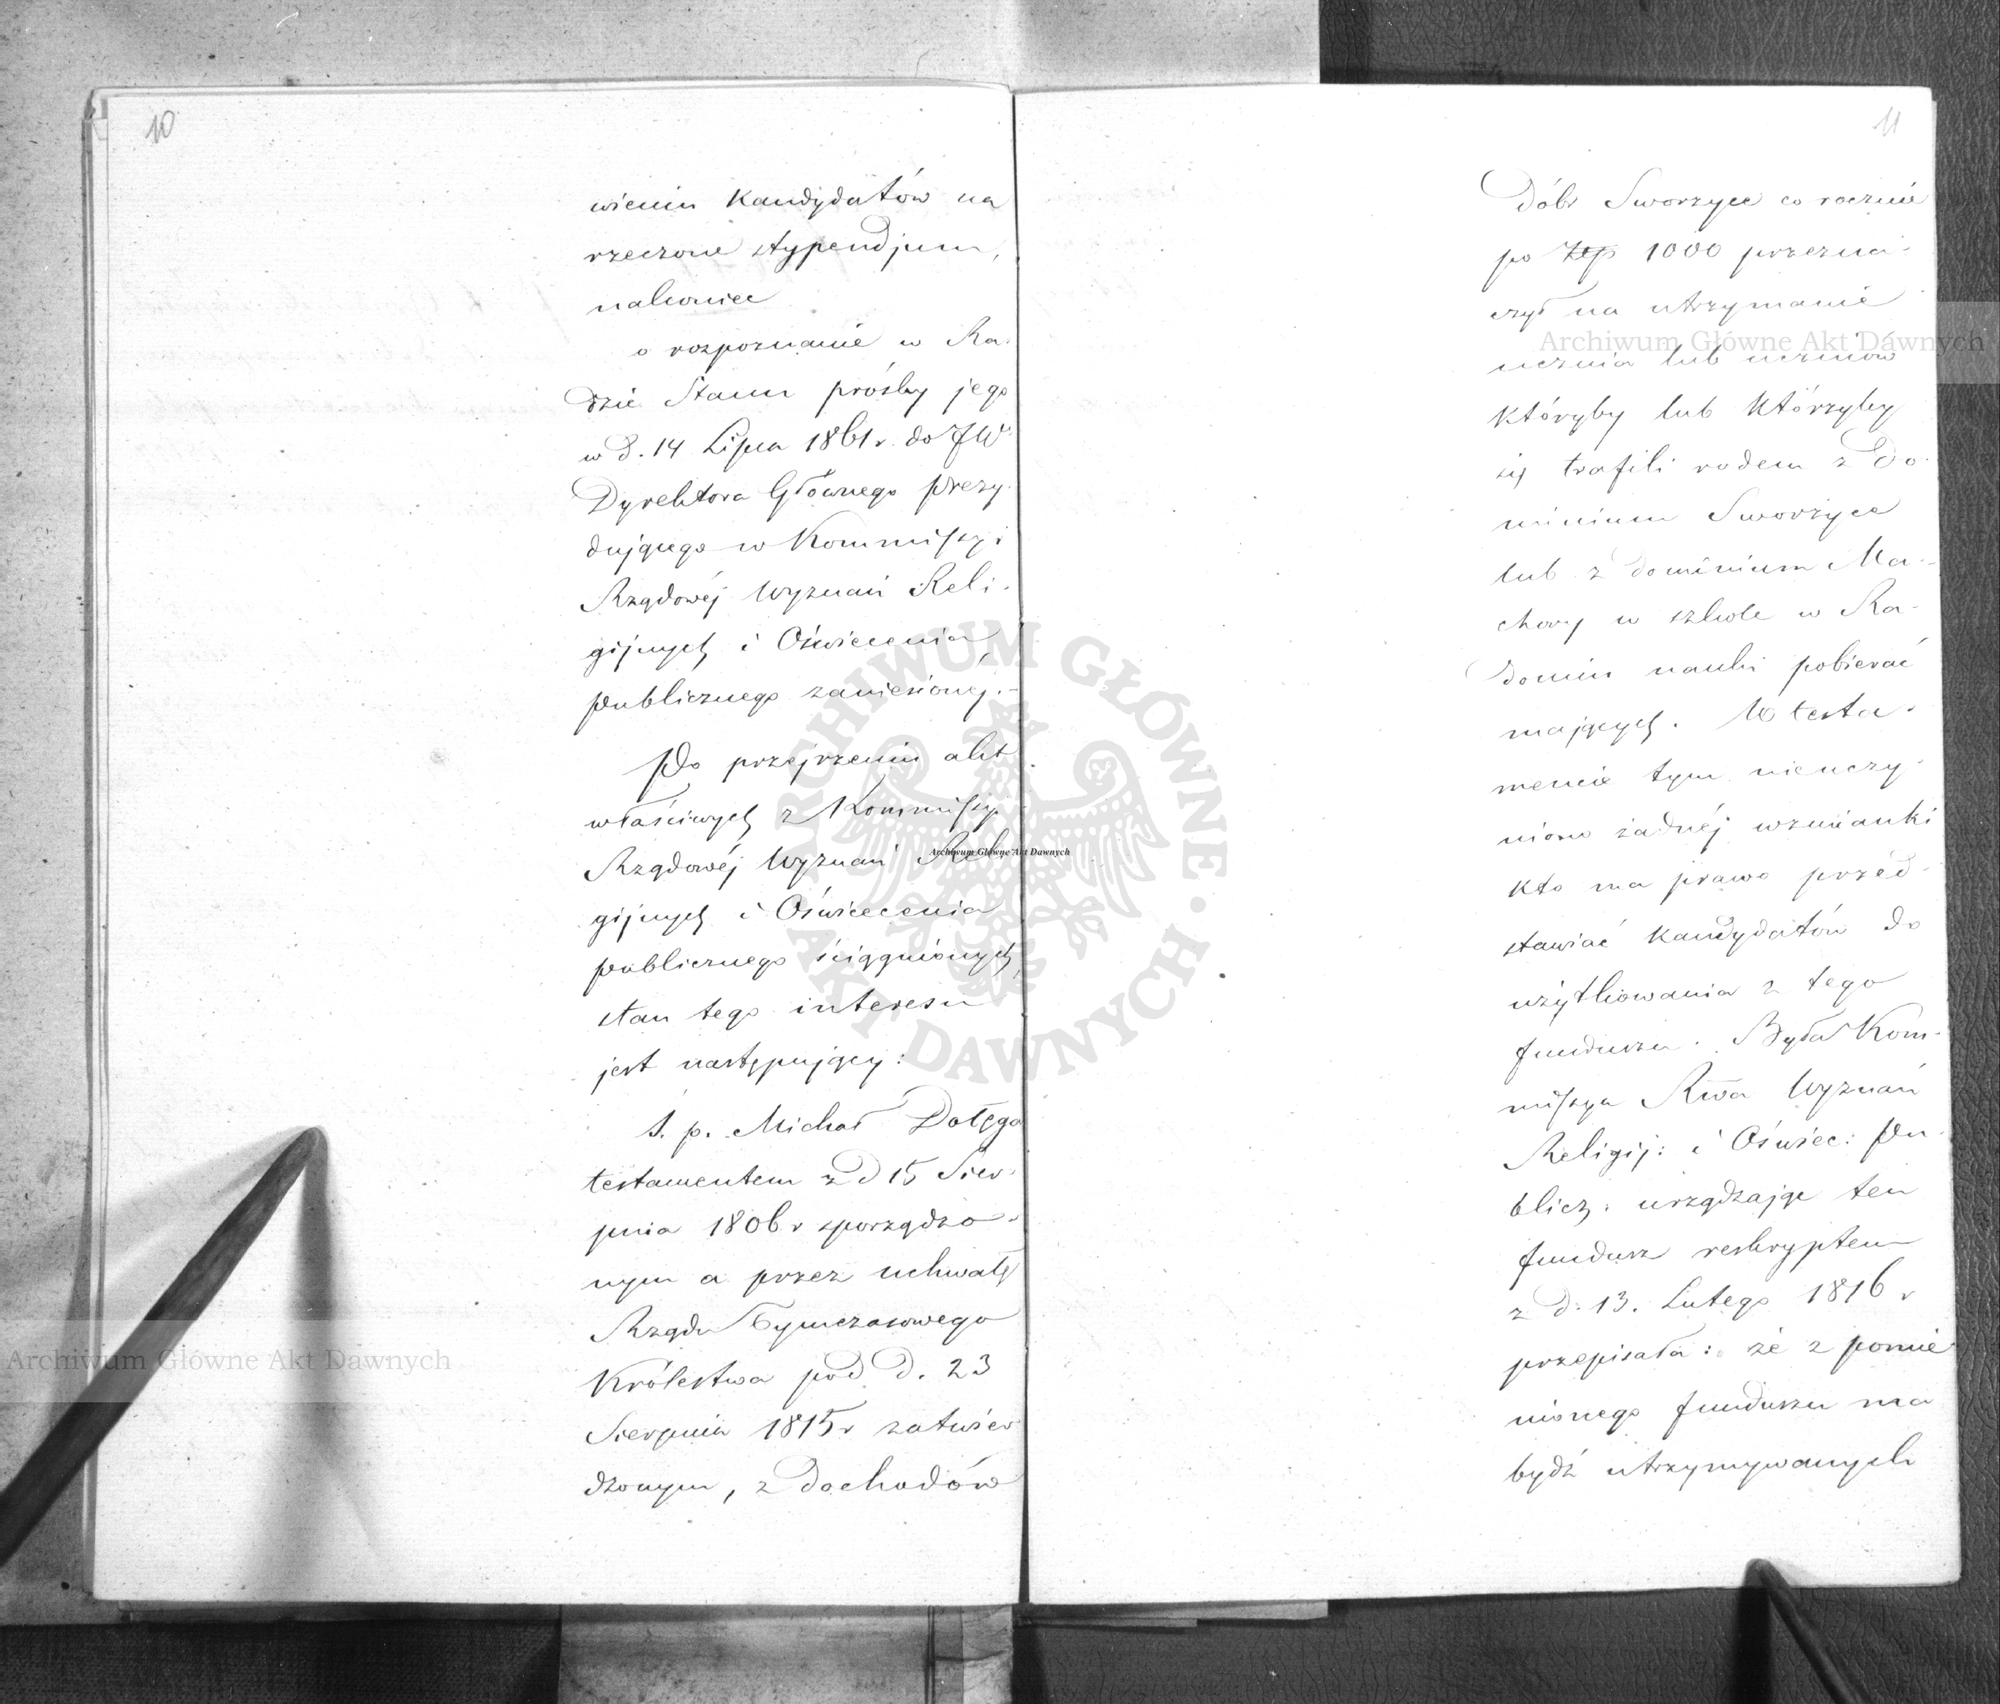 10
wieniu kandydatów na
rzeczone stypendjum,
nakoniec
o rozpoznanie w Ra-
dzie Stanu prośby jego
w d. 14 Lipca 1861 r. do JW
Dyrektora Głównego Prezy-
dującego w Kommissyi
Rządowéj Wyznań Reli-
gijnych i Oświecenia
Publicznego zaniesionej.-
Po przejrzeniu akt
właściwych z Kommissyi
Rządowéj Wyznań Reli
gijnych i Oświecenia
Publicznego ściągnionych,
stan tego interesu
jest następujący:
Ś. p. Michał Dołęga
testamentem z d 15 Sier-
pnia 1806 r sporządzo-
nym a przez uchwałę
Rządu Tymczasowego
Królestwa pod d. 23
Sierpnia 1815 r zatwier
dzonym, z dochodów
11
Dóbr Sworzyce co rocznie
po Złp 1000 przezna-
czył na utrzymanie
ucznia lub uczniów
któryby lub którzyby
się trafili rodem z Do-
minium Sworzyce
lub z dominium Ma-
chory w szkole w Ra-
domiu nauki pobierać
mających. W testa-
mencie tym nieuczy-
niono żadnéj wzmianki
kto ma prawo przed-
stawiać kandydatów do
użytkowania z tego
funduszu. Była Kom-
missya Rwa Wyznań
Religij: i Oświec: Pu-
blicz: urządzając ten
fundusz reskryptem
z d. 13. Lutego 1816 r
przepisała: że z pomie
nionego funduszu ma
bydź utrzymywanych
Archiwum Główne Akt Dawnych
Archiwum Główne Akt Dawnych
Archiwum Główne Akt Dawnych
ARCHIWUM GŁÓWNE · AKT DAWNYCH ·